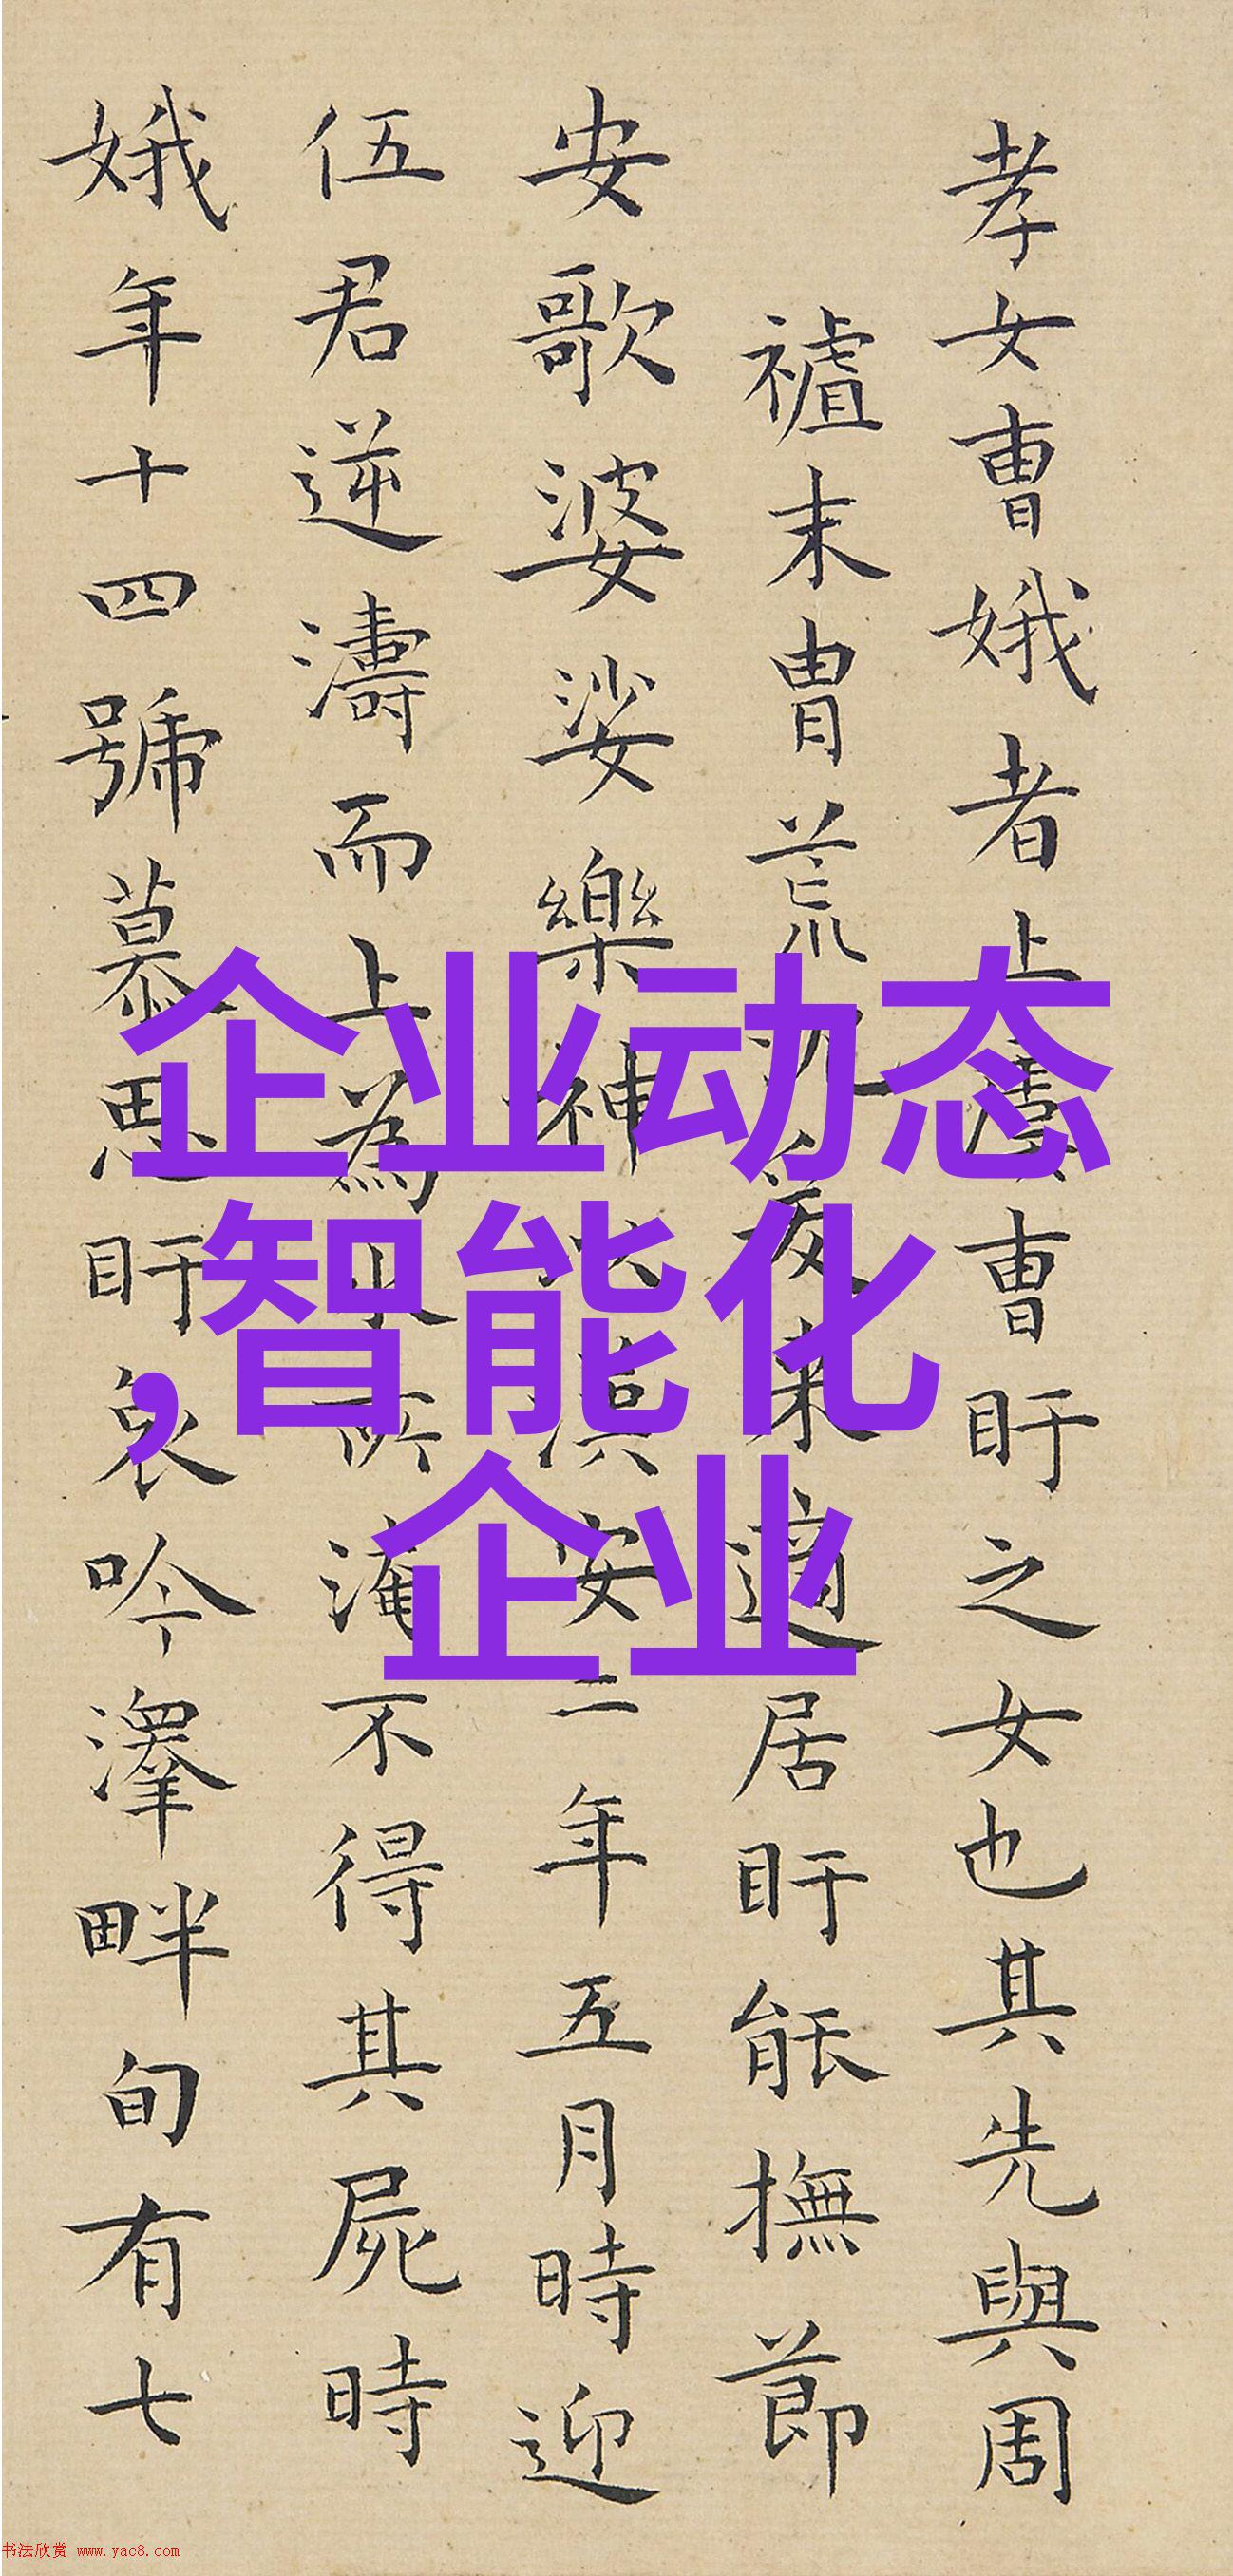 孝女曹娥者上虞曹盱之女也其先與周
末胄荒沉爰来適居盱能撫節
安歌婆娑樂神以漢安二年五月時迎
伍君逆濤而上為水所淹不得其屍時
娥年十四號慕思盱哀吟澤畔旬有七
企业动态
,智能化
企业
书法欣赏 www.yac8.com